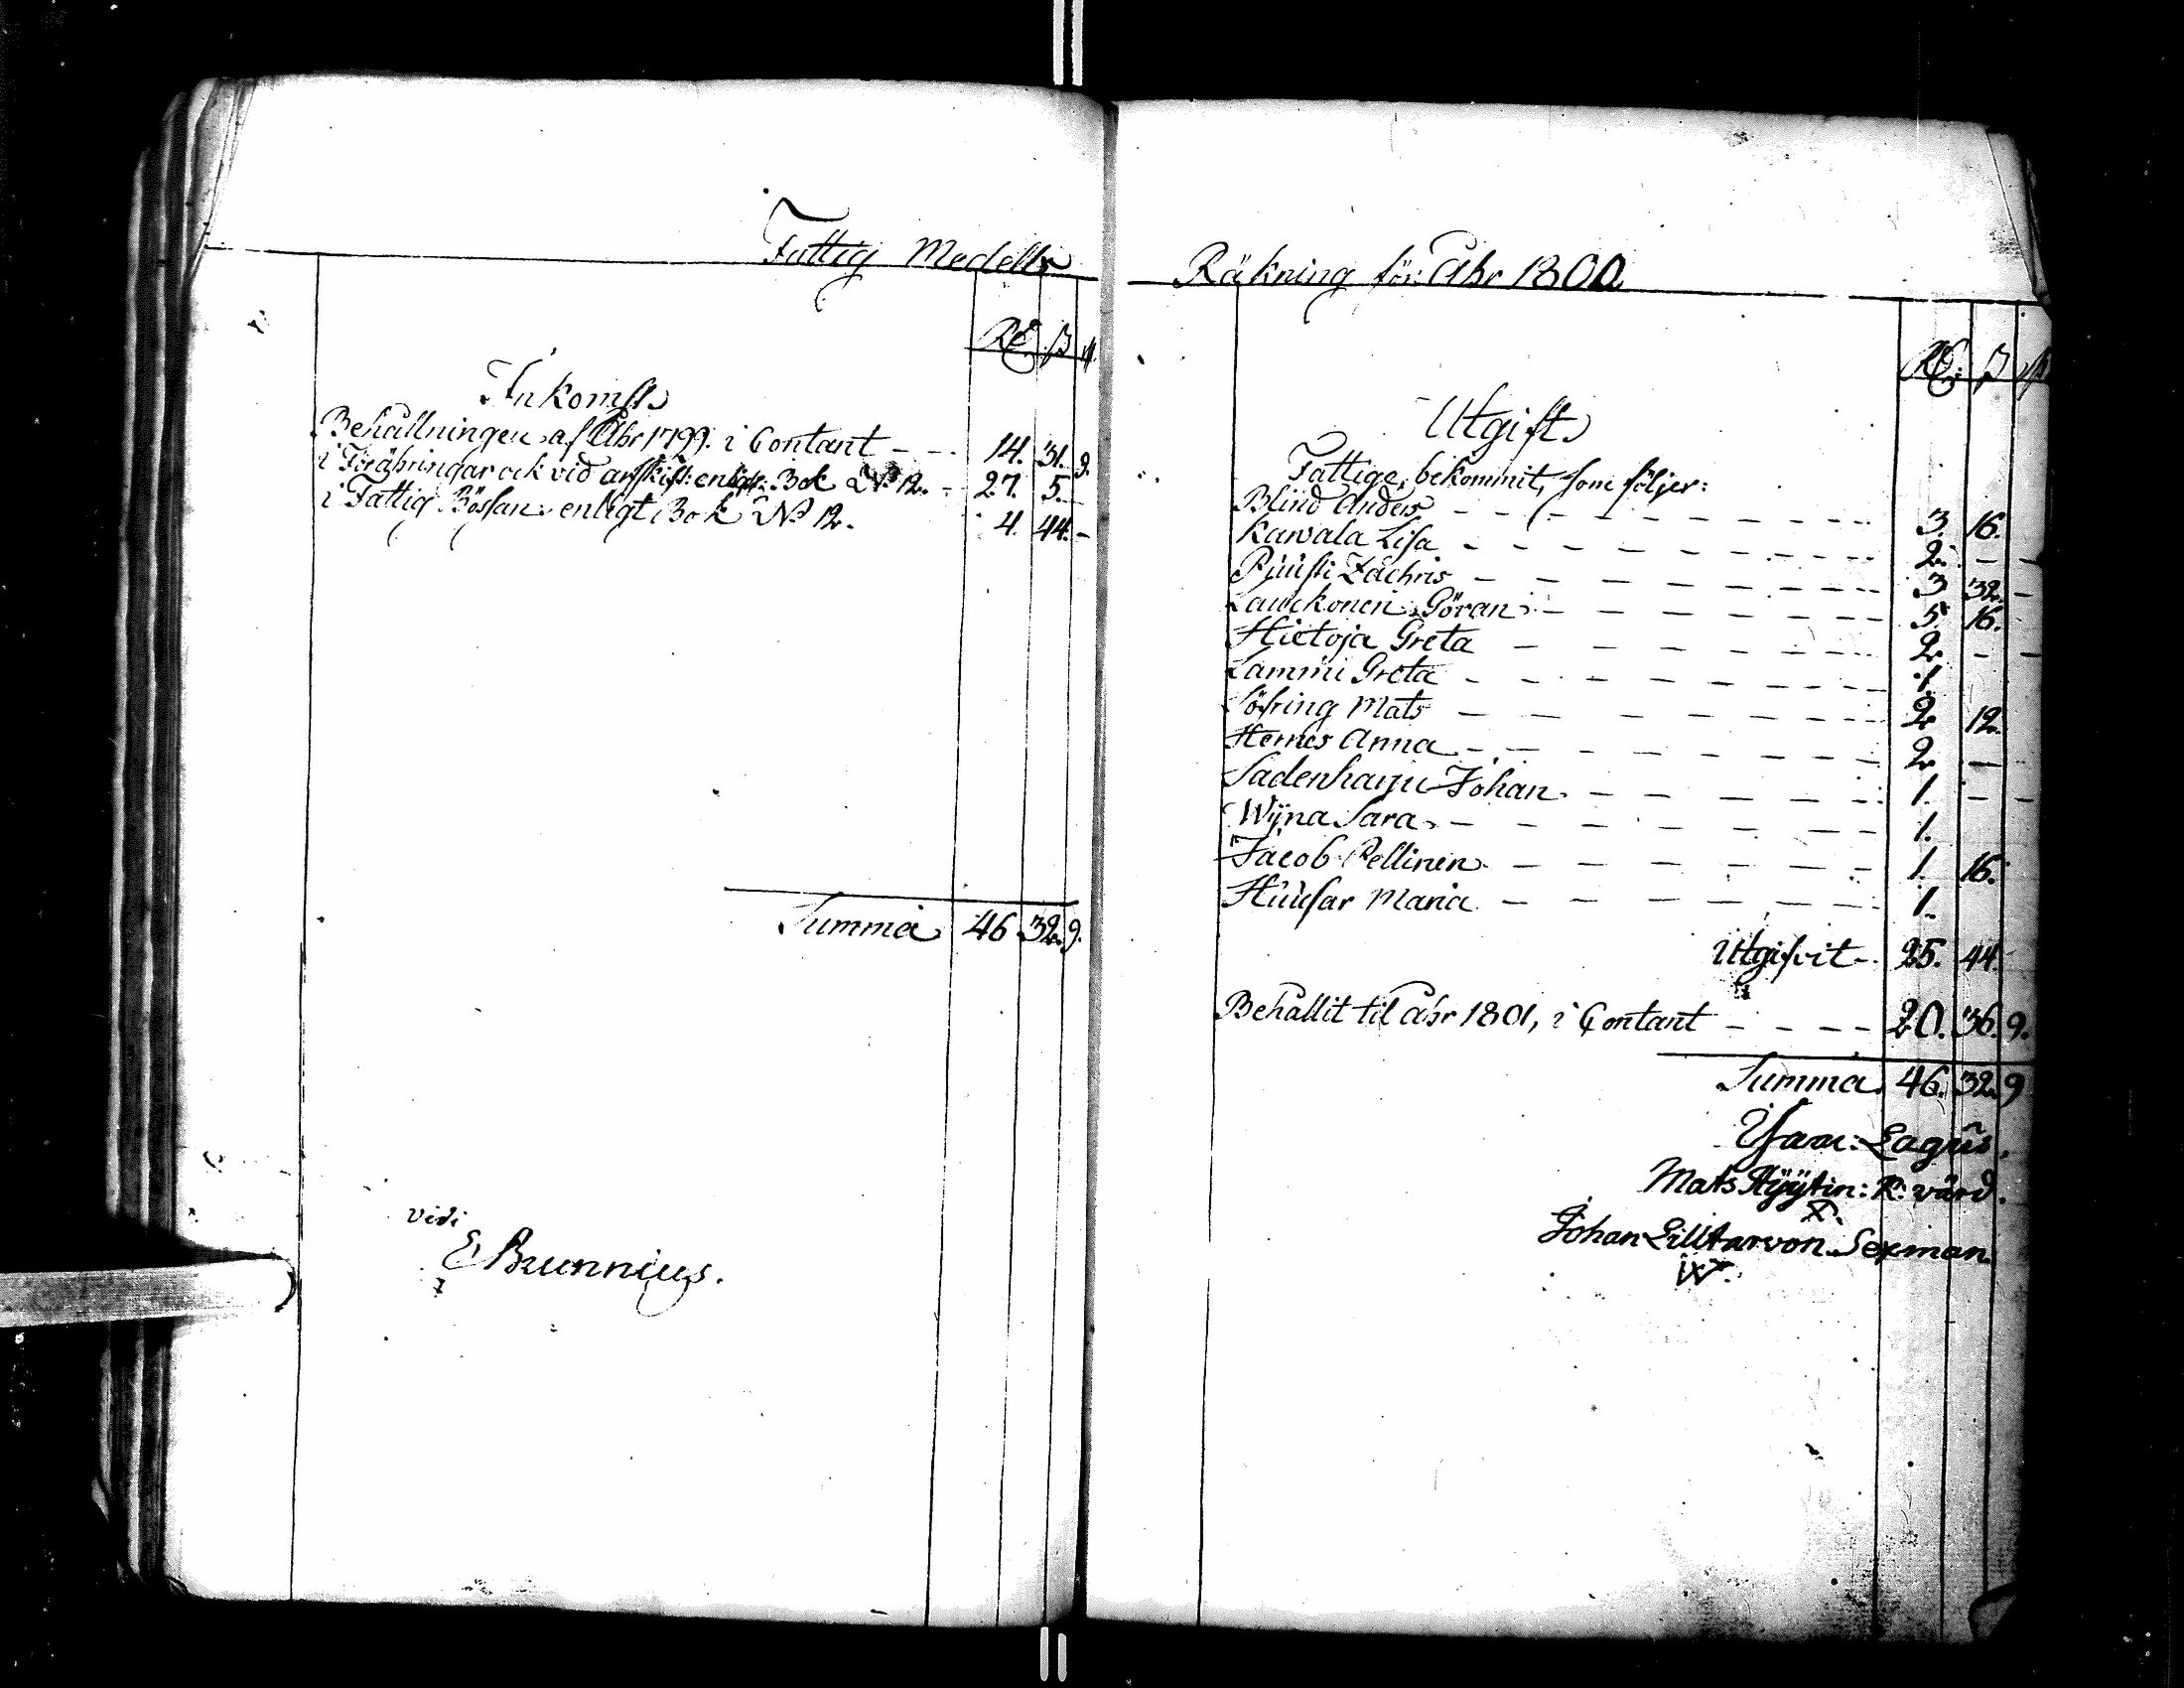 Fattig Medells
Rd ß
Inkomst
Behållningen af Åhr 1799. i Contant - - - 14. 31. 9.
i Föräringar ock vid arfskift: enligt Bok No 12. - 27. 5. -
i Fattig Bössan enligt Bok No 12. 4. 44. -
Summa 46 32. 9.
vidi
E Brunnius.
Räkning för Åhr 1800
Rd ß
Utgift
Fattige, bekommit, som följer:
Blind Anders - - - 3. 16.
Kawala Lisa - - - 2. - -
Ruusti Zachris - - - 3 32. -
Lauckonen Göran - - - 5. 16.
Hietoja Greta - - - 2. - -
Lammi Greta - - - 1.
Söfring Mats - - - 2 12.
Hemes Anna - - - 2. -
Sadenharju Johan - - - 1. - -
Wijna Sara - - - 1.
Jacob Pellinen - - - 1. 16.
Huusar Maria - - - 1.
Utgifvit - 25. 44.
Behållit til Åhr 1801, i Contant - - - - 20. 36. 9.
Summa 46. 32. 9
Isaac: Lagus.
Mats Hyytin: K: värd.
Johan Lilltarvon Sexman